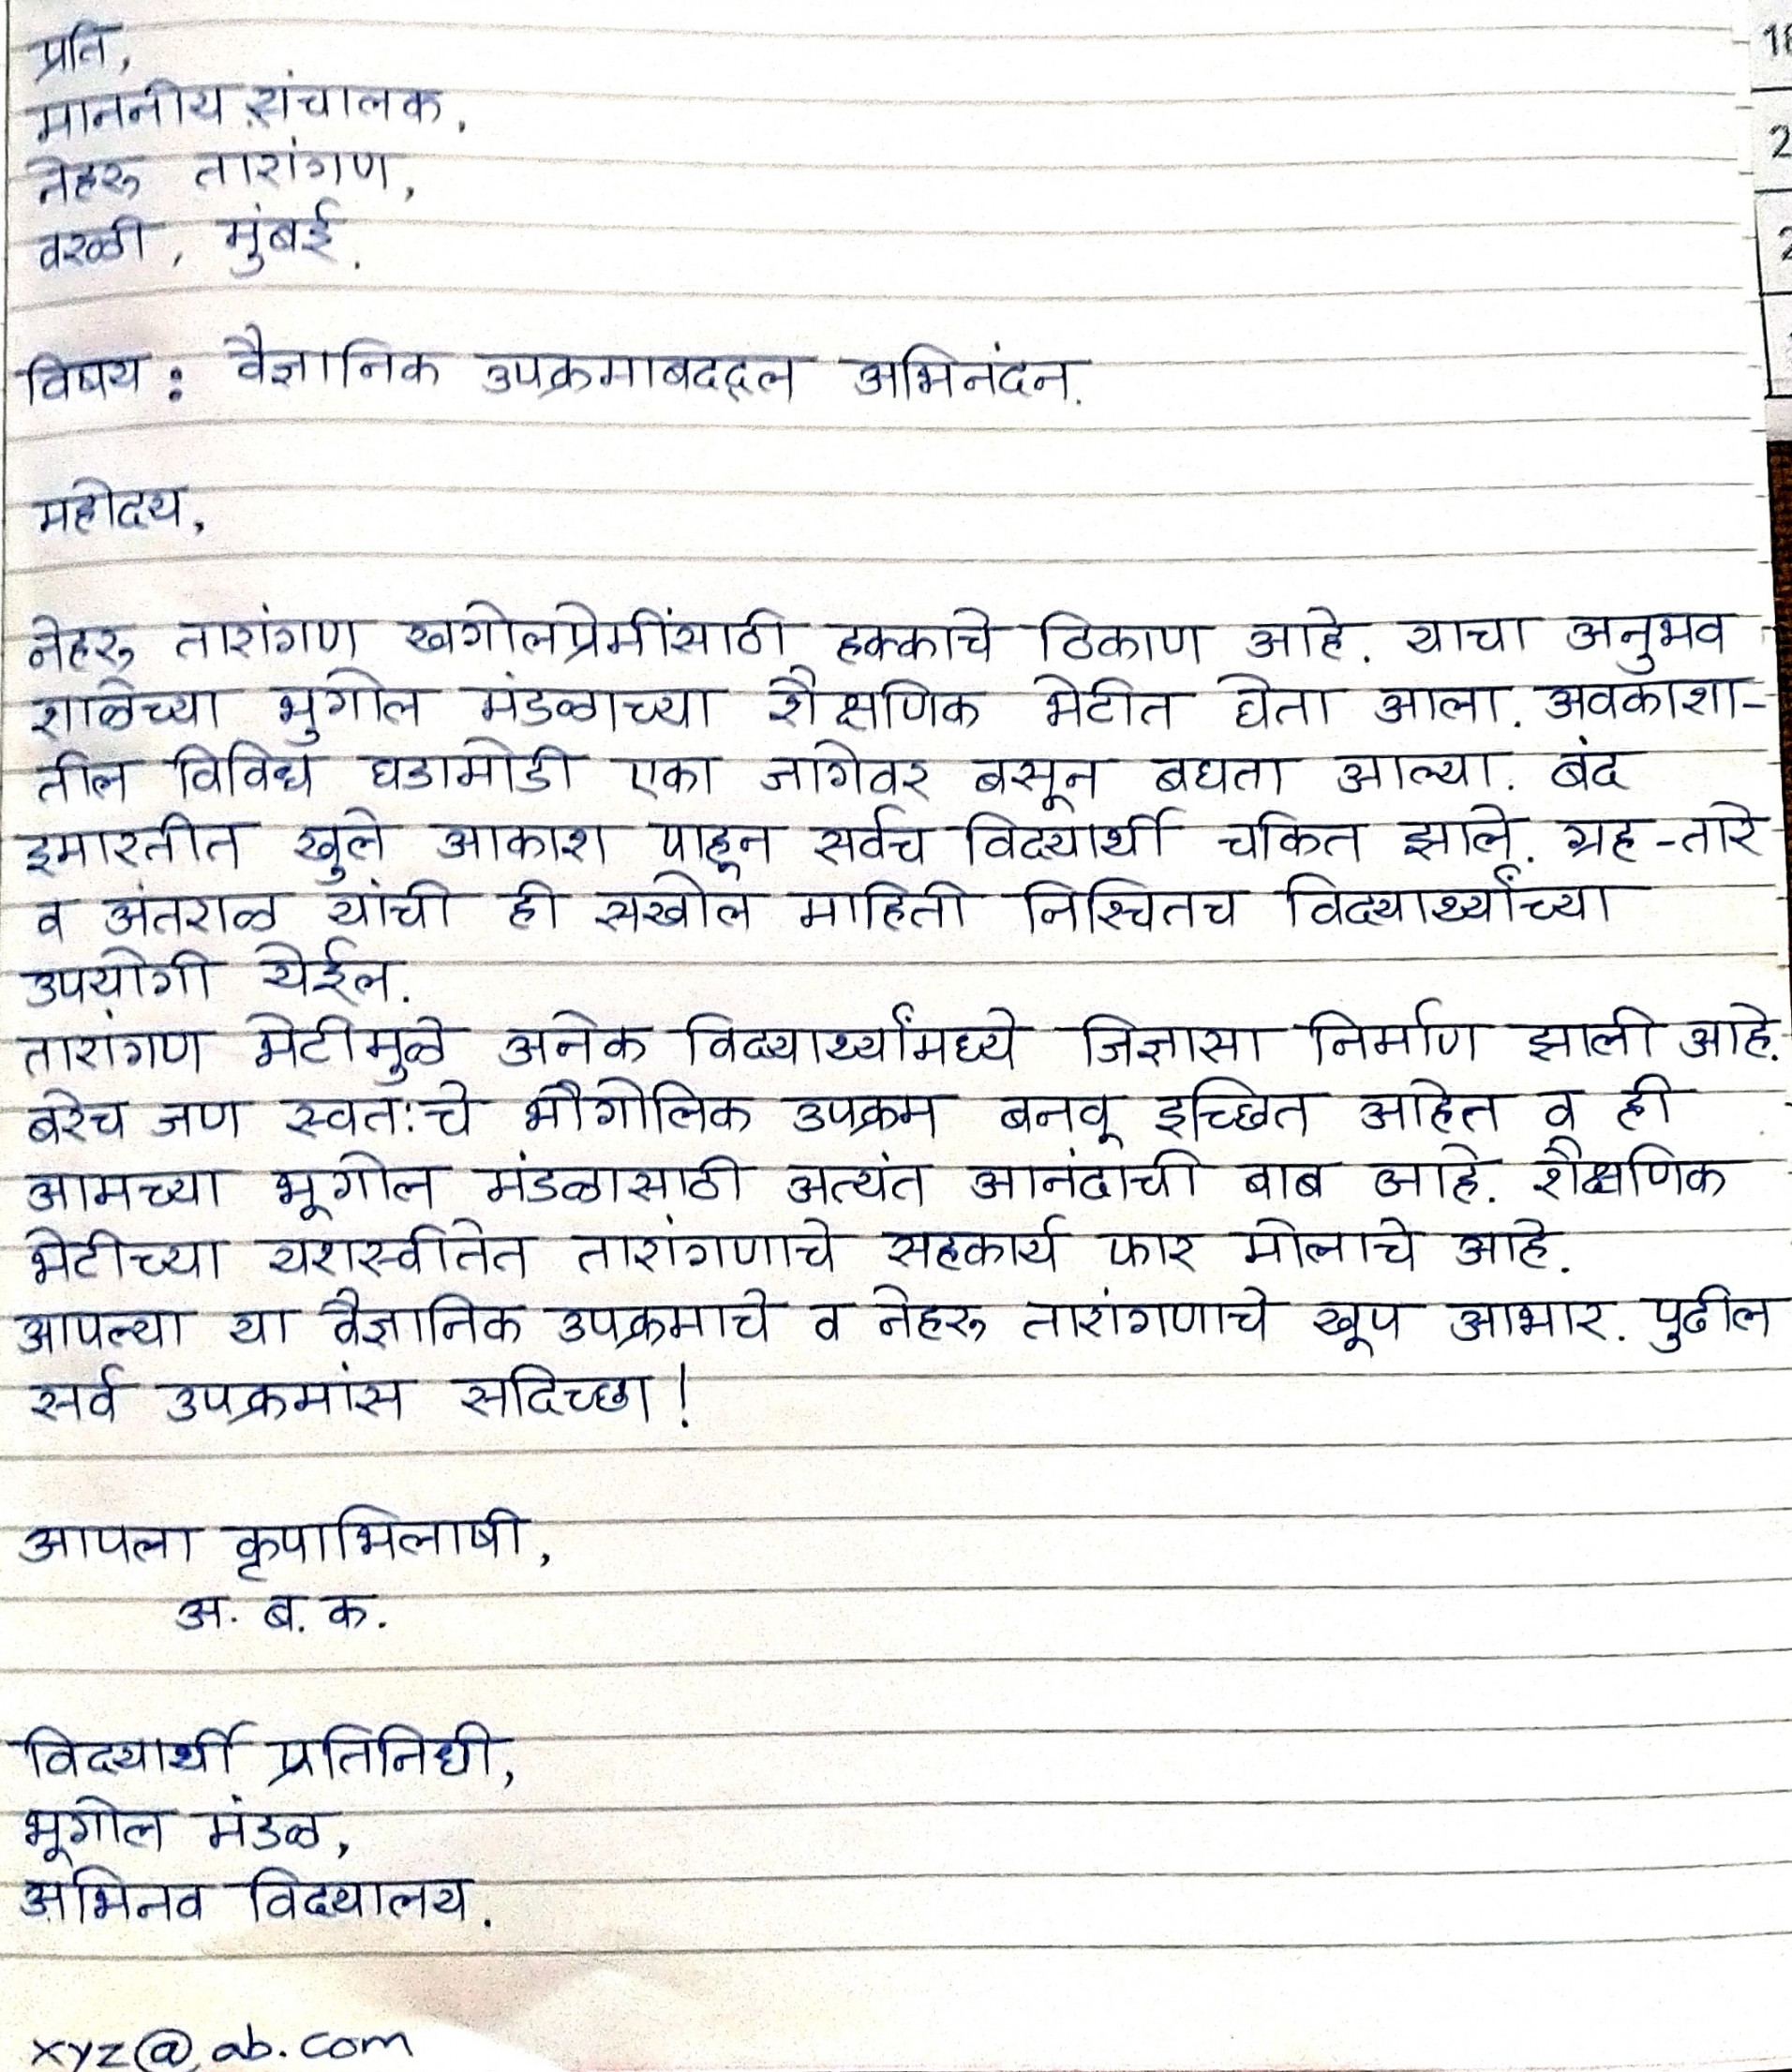 प्रति,
माननीय संचालक,
नेहरू तारांगण,
वरळी, मुंबई.
विषय : वैज्ञानिक उपक्रमाबद्दल अभिनंदन.
महोदय,
नेहरू तारांगण खगोलप्रेमींसाठी हक्काचे ठिकाण आहे. याचा अनुभव
शाळेच्या भुगोल मंडळाच्या शैक्षणिक भेटीत घेता आला. अवकाशा-
तील विविध घडामोडी एका जागेवर बसून बघता आल्या. बंद
इमारतीत खुले आकाश पाहून सर्वच विद्यार्थी चकित झाले. ग्रह-तारे
व अंतराळ यांची ही सखोल माहिती निश्चितच विद्यार्थ्यांच्या
उपयोगी येईल.
तारांगण भेटीमुळे अनेक विद्यार्थ्यांमध्ये जिज्ञासा निर्माण झाली आहे.
बरेच जण स्वत:चे भौगोलिक उपक्रम बनवू इच्छित आहेत व ही
आमच्या भूगोल मंडळासाठी अत्यंत आनंदाची बाब आहे. शैक्षणिक
भेटीच्या यशस्वीतेत तारांगणाचे सहकार्य फार मोलाचे आहे.
आपल्या या वैज्ञानिक उपक्रमाचे व नेहरू तारांगणाचे खूप आभार. पुढील
सर्व उपक्रमांस सदिच्छा!
आपला कृपाभिलाषी,
अ. ब. क.
विद्यार्थी प्रतिनिधी,
भूगोल मंडळ,
अभिनव विद्यालय.
xyz@ab.com